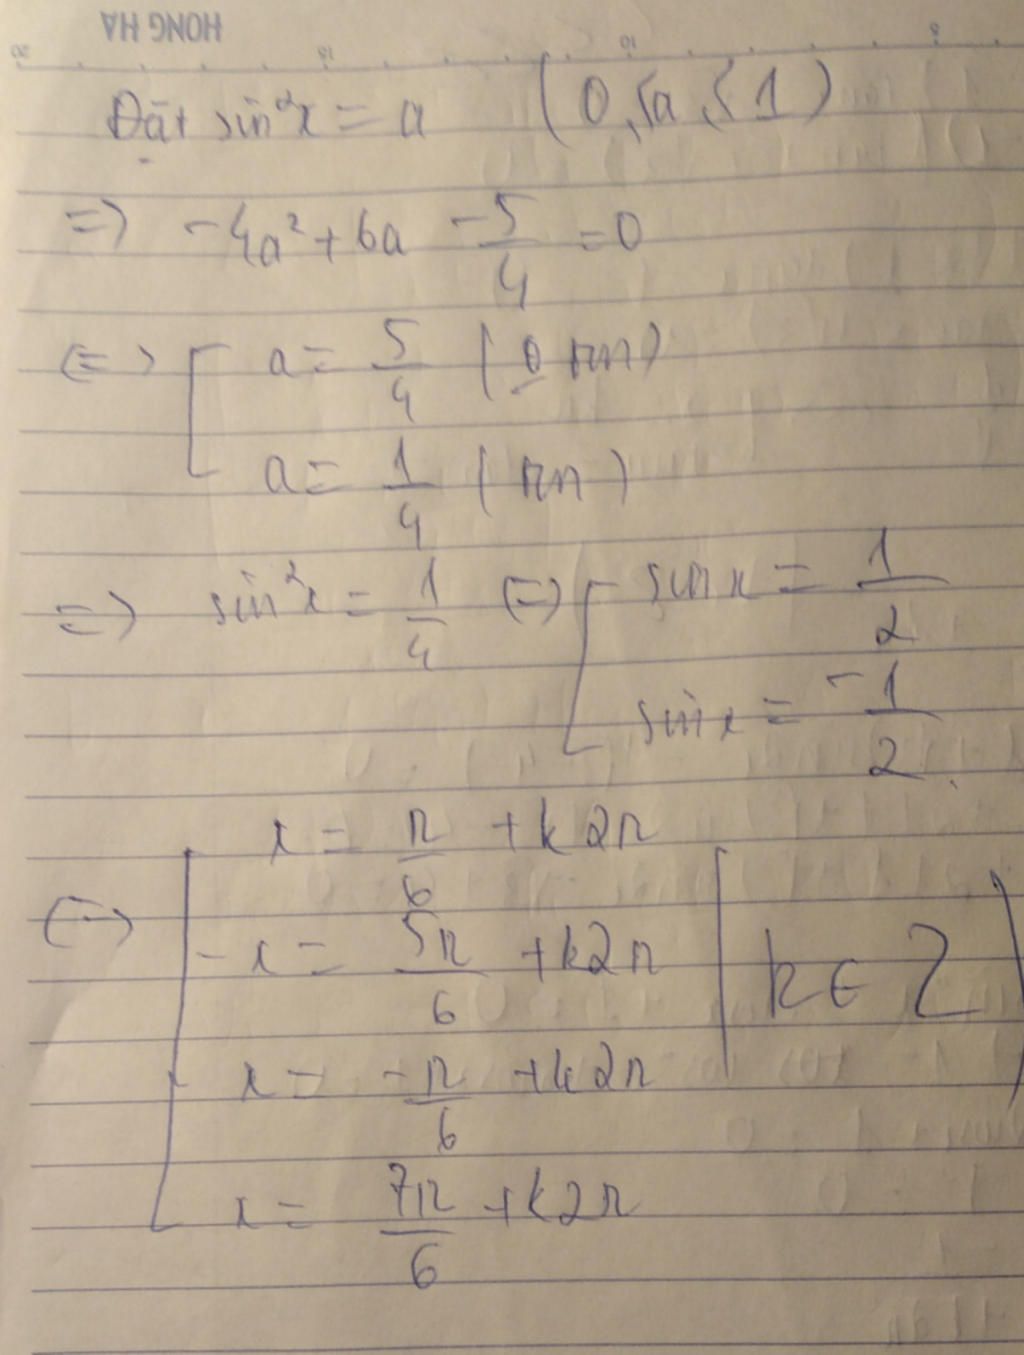 HONG HA
20 15 10 5
Đặt sin²x = a (0 ≤ a ≤ 1)
=> -4a² + 6a - 5/4 = 0
<=> [ a = 5/4 (0 TMN)
a = 1/4 (TMN)
=> sin²x = 1/4 <=> [ sin x = 1/2
sin x = -1/2
<=> [ x = π/6 + k2π
x = 5π/6 + k2π (k ∈ Z)
x = -π/6 + k2π
x = 7π/6 + k2π